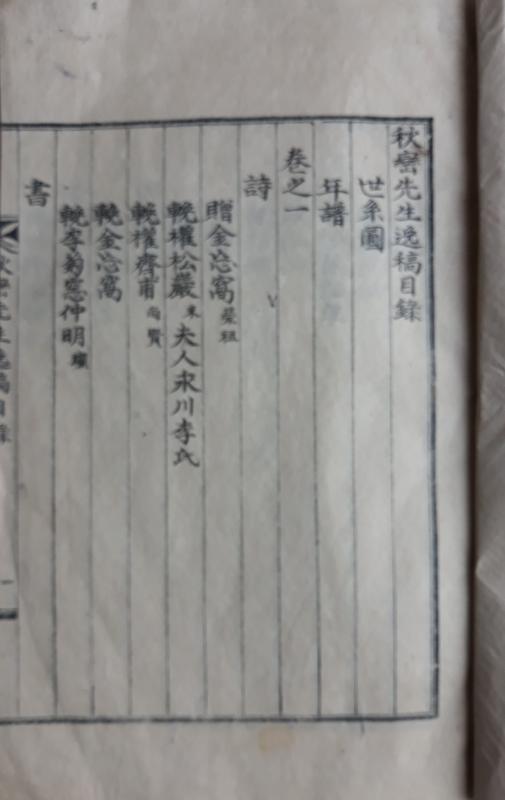 秋巒先生逸稿目錄
世系圖
年譜
卷之一
詩
贈金忘窩榮祖
輓權松巖來夫人永川李氏
輓權齊甫尙賢
輓金忘窩
輓李菊窓仲明瓚
書
秋巒先生逸稿目錄 一